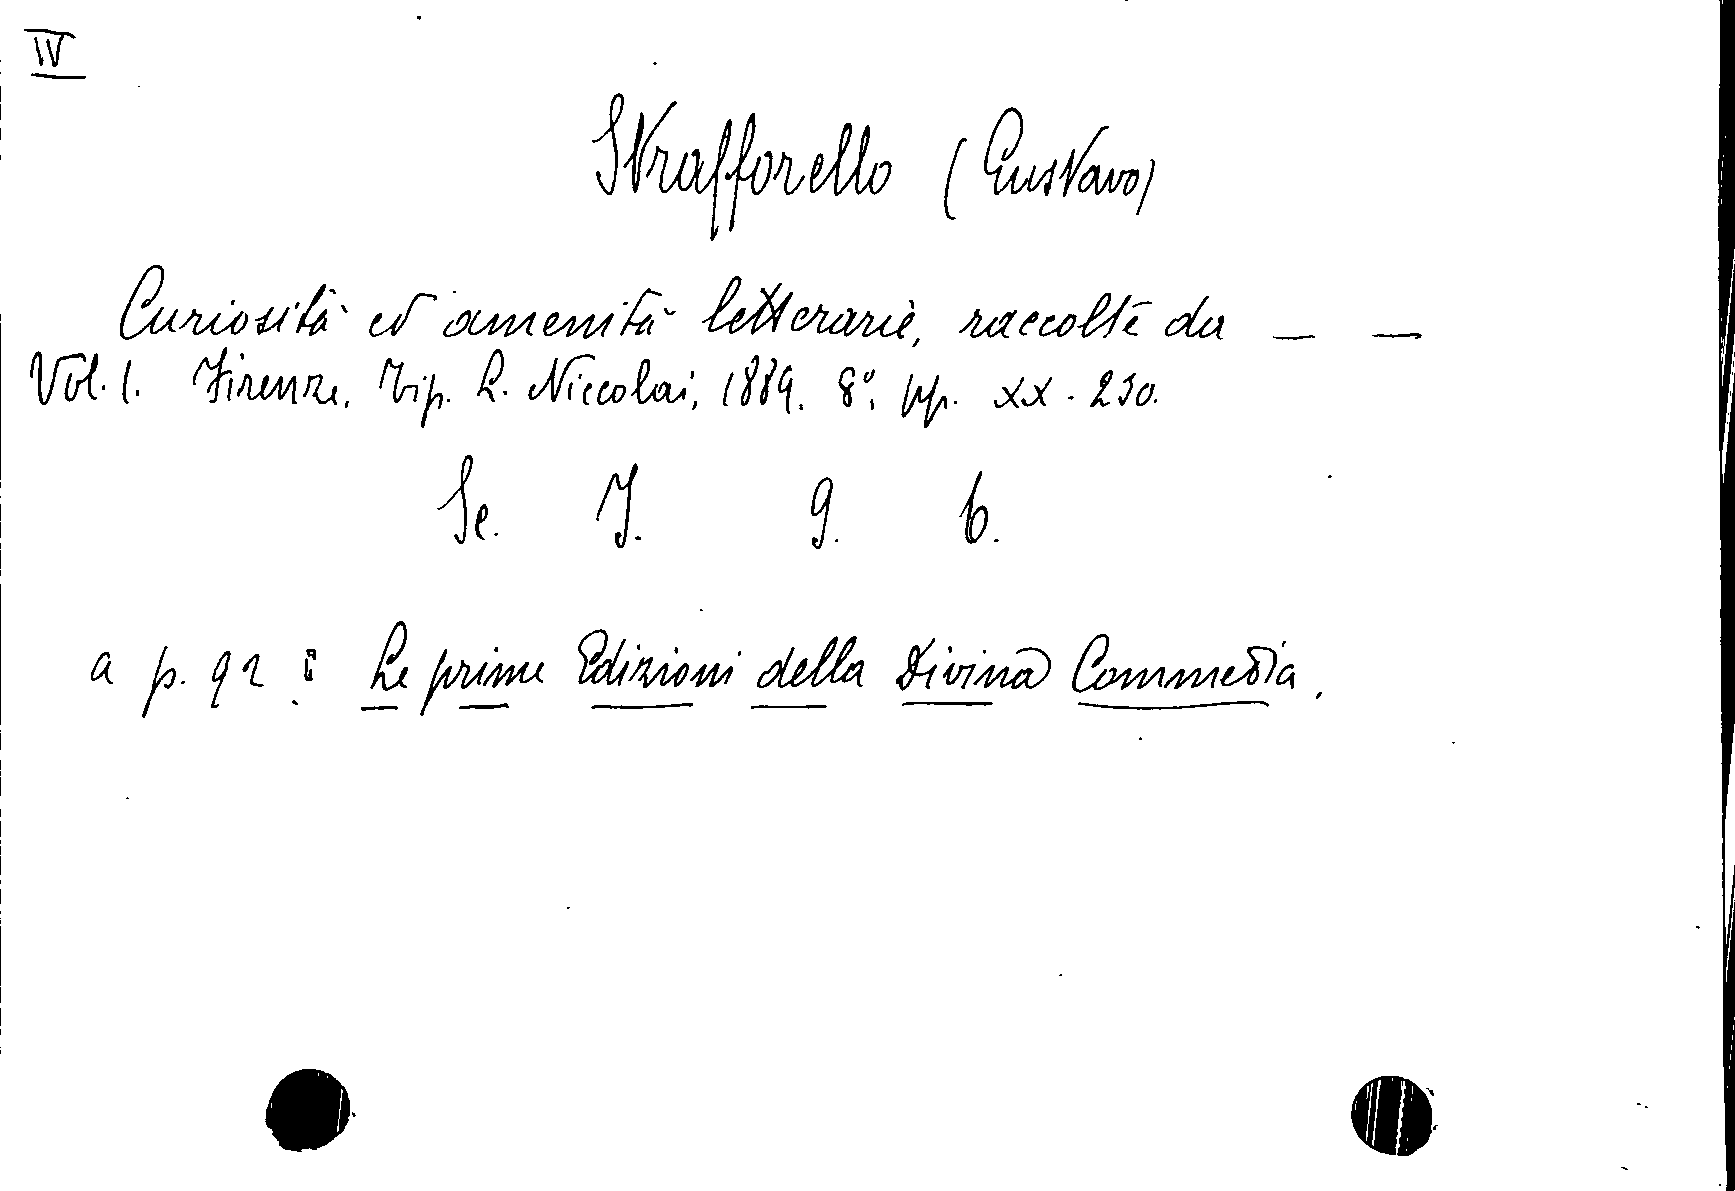 IV
Strafforello (Gustavo)
Curiosità ed amenità letterarie, raccolte da — —
Vol. 1. Firenze, Tip. L. Niccolai, 1889. 8°, pp. XX-230.
Se. I. 9. 6.
a p. 92: Le prime Edizioni della Divina Commedia.